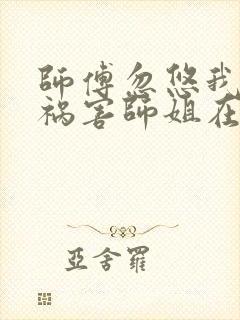 師傅忽悠我
禍害師姐在
亞舍羅